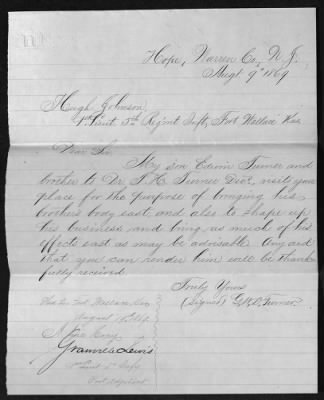 Hope, Warren Co, N.J.
Augt 9th 1869
Hugh Johnson
1st Lieut 5th Regmt Inft, Fort Wallace Kas.
Dear Sir
My son Edwin Turner and
brother to Dr. T. H. Turner Decd, visits your
place for the purpose of bringing his
brother's body east, and also to shape up
his business and bring as much of his
effects east as may be advisable. Any aid
that you can render him will be thank-
fully received
Truly Yours
(Signed) Turner.
Fort Wallace
August 1869
A True Copy
Granville Lewis
1st Lieut 5th Infy
Post Adjutant